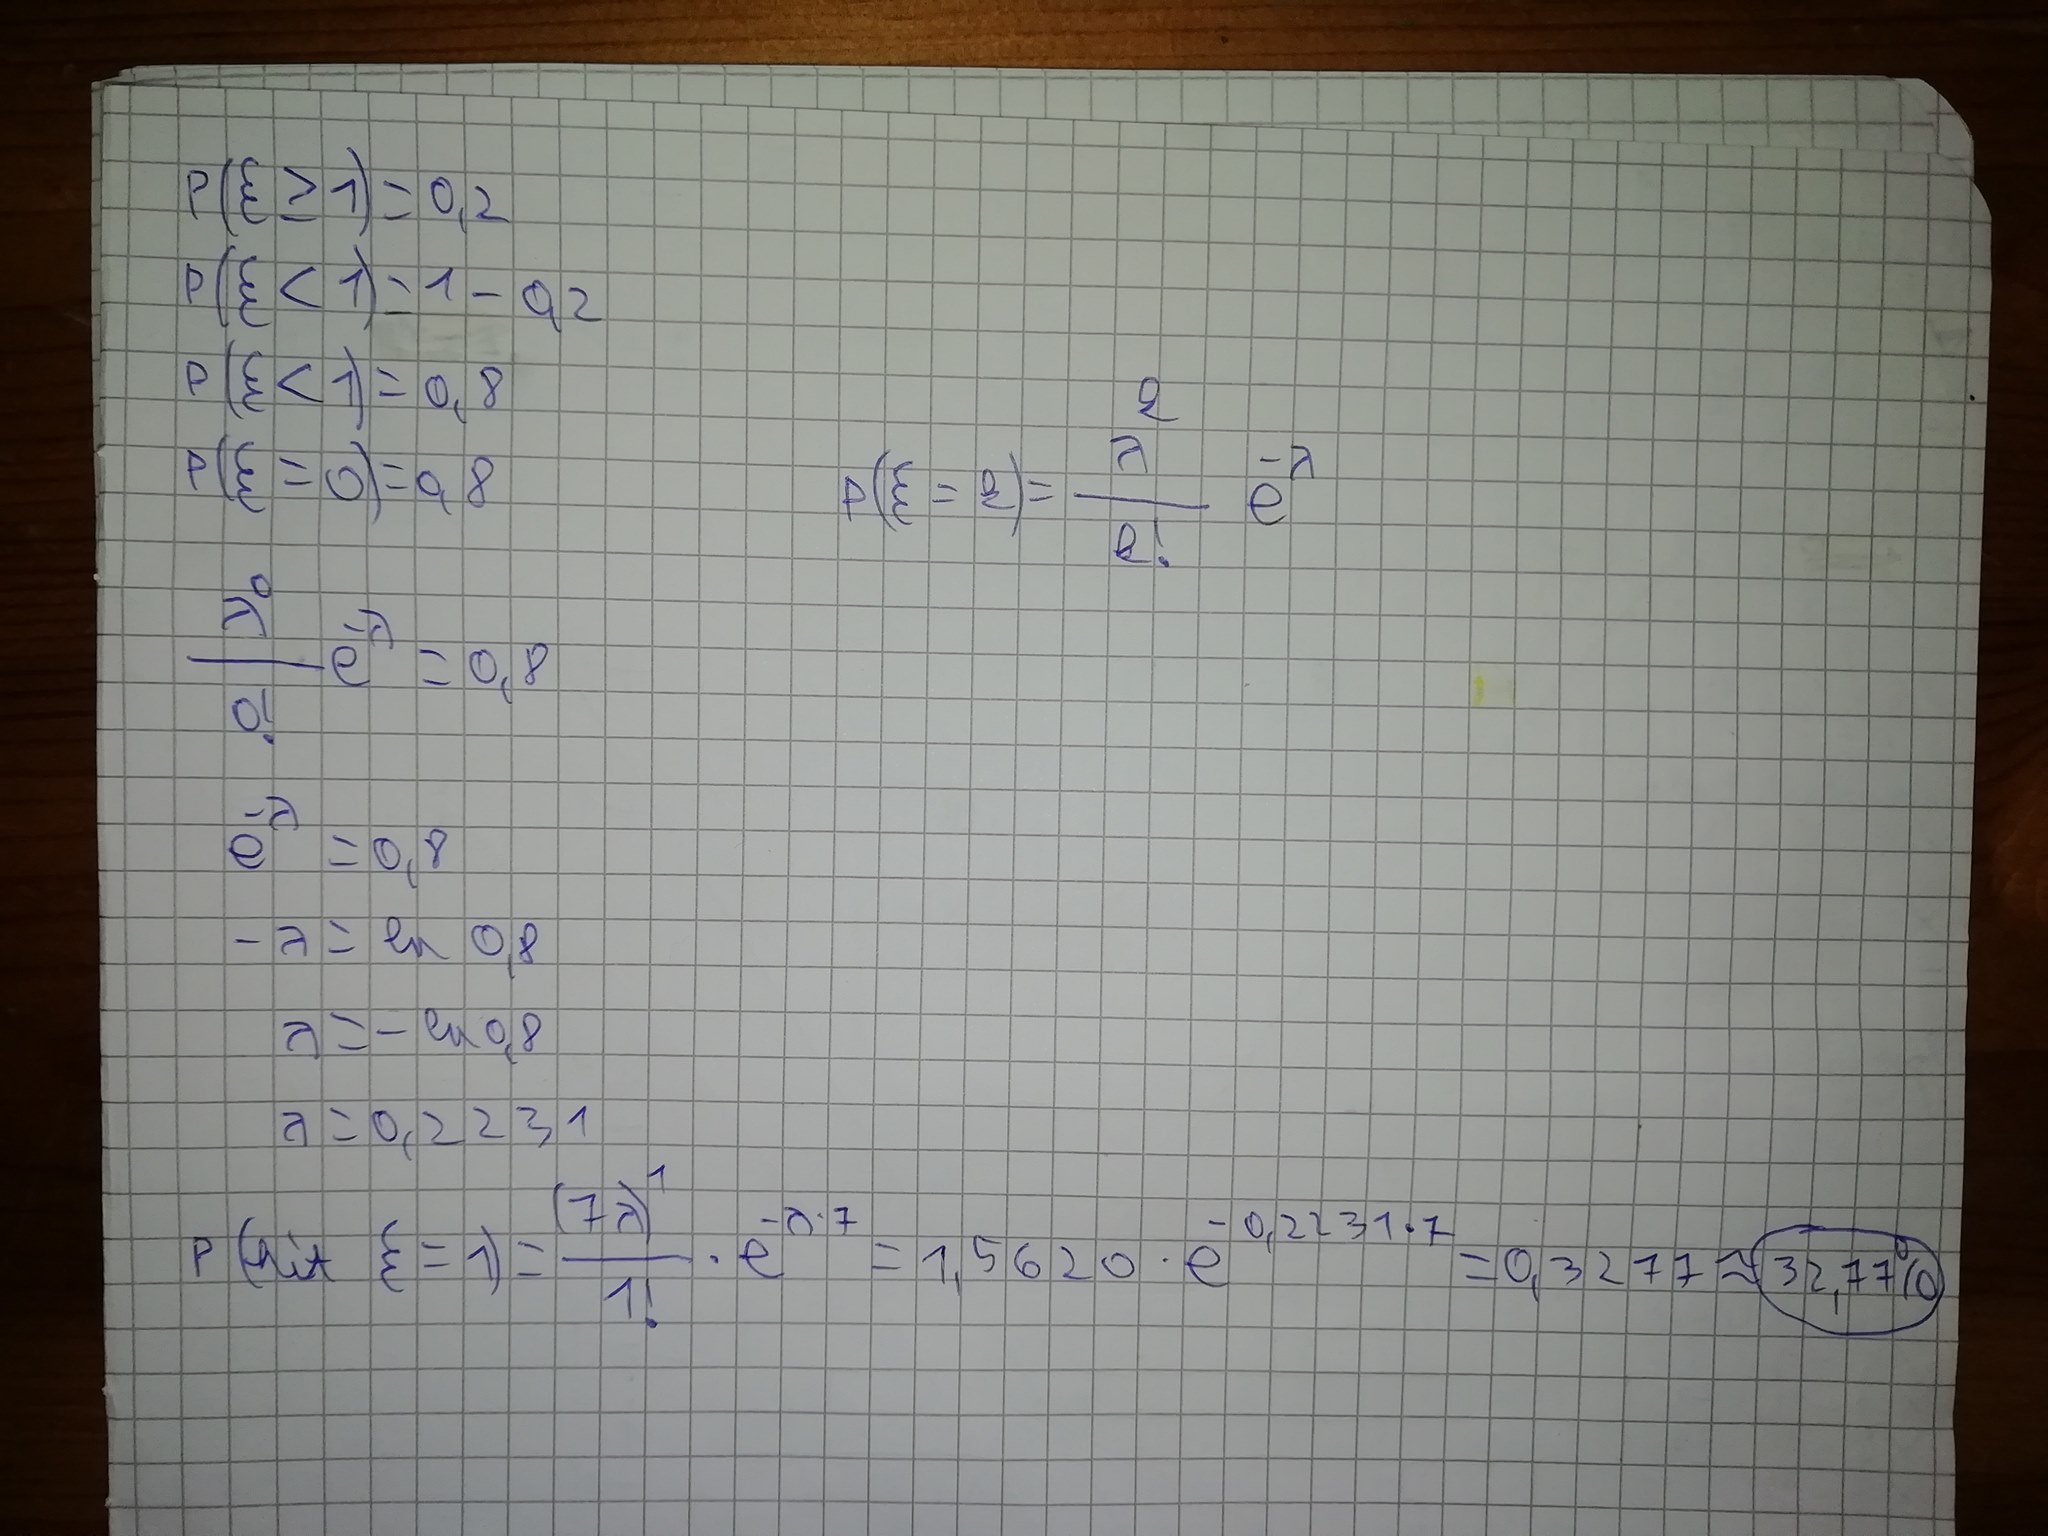 P(ξ ≥ 1) = 0,2
P(ξ < 1) = 1 - 0,2
P(ξ < 1) = 0,8
P(ξ = 0) = 0,8
P(ξ = k) = λ^k / k! e^-λ
λ^0 / 0! e^-λ = 0,8
e^-λ = 0,8
-λ = ln 0,8
λ = - ln 0,8
λ = 0,2231
P( ξ = 1) = (7λ)^1 / 1! · e^-λ·7 = 1,5620 · e^-0,2231·7 = 0,3277 ≈ 32,77%